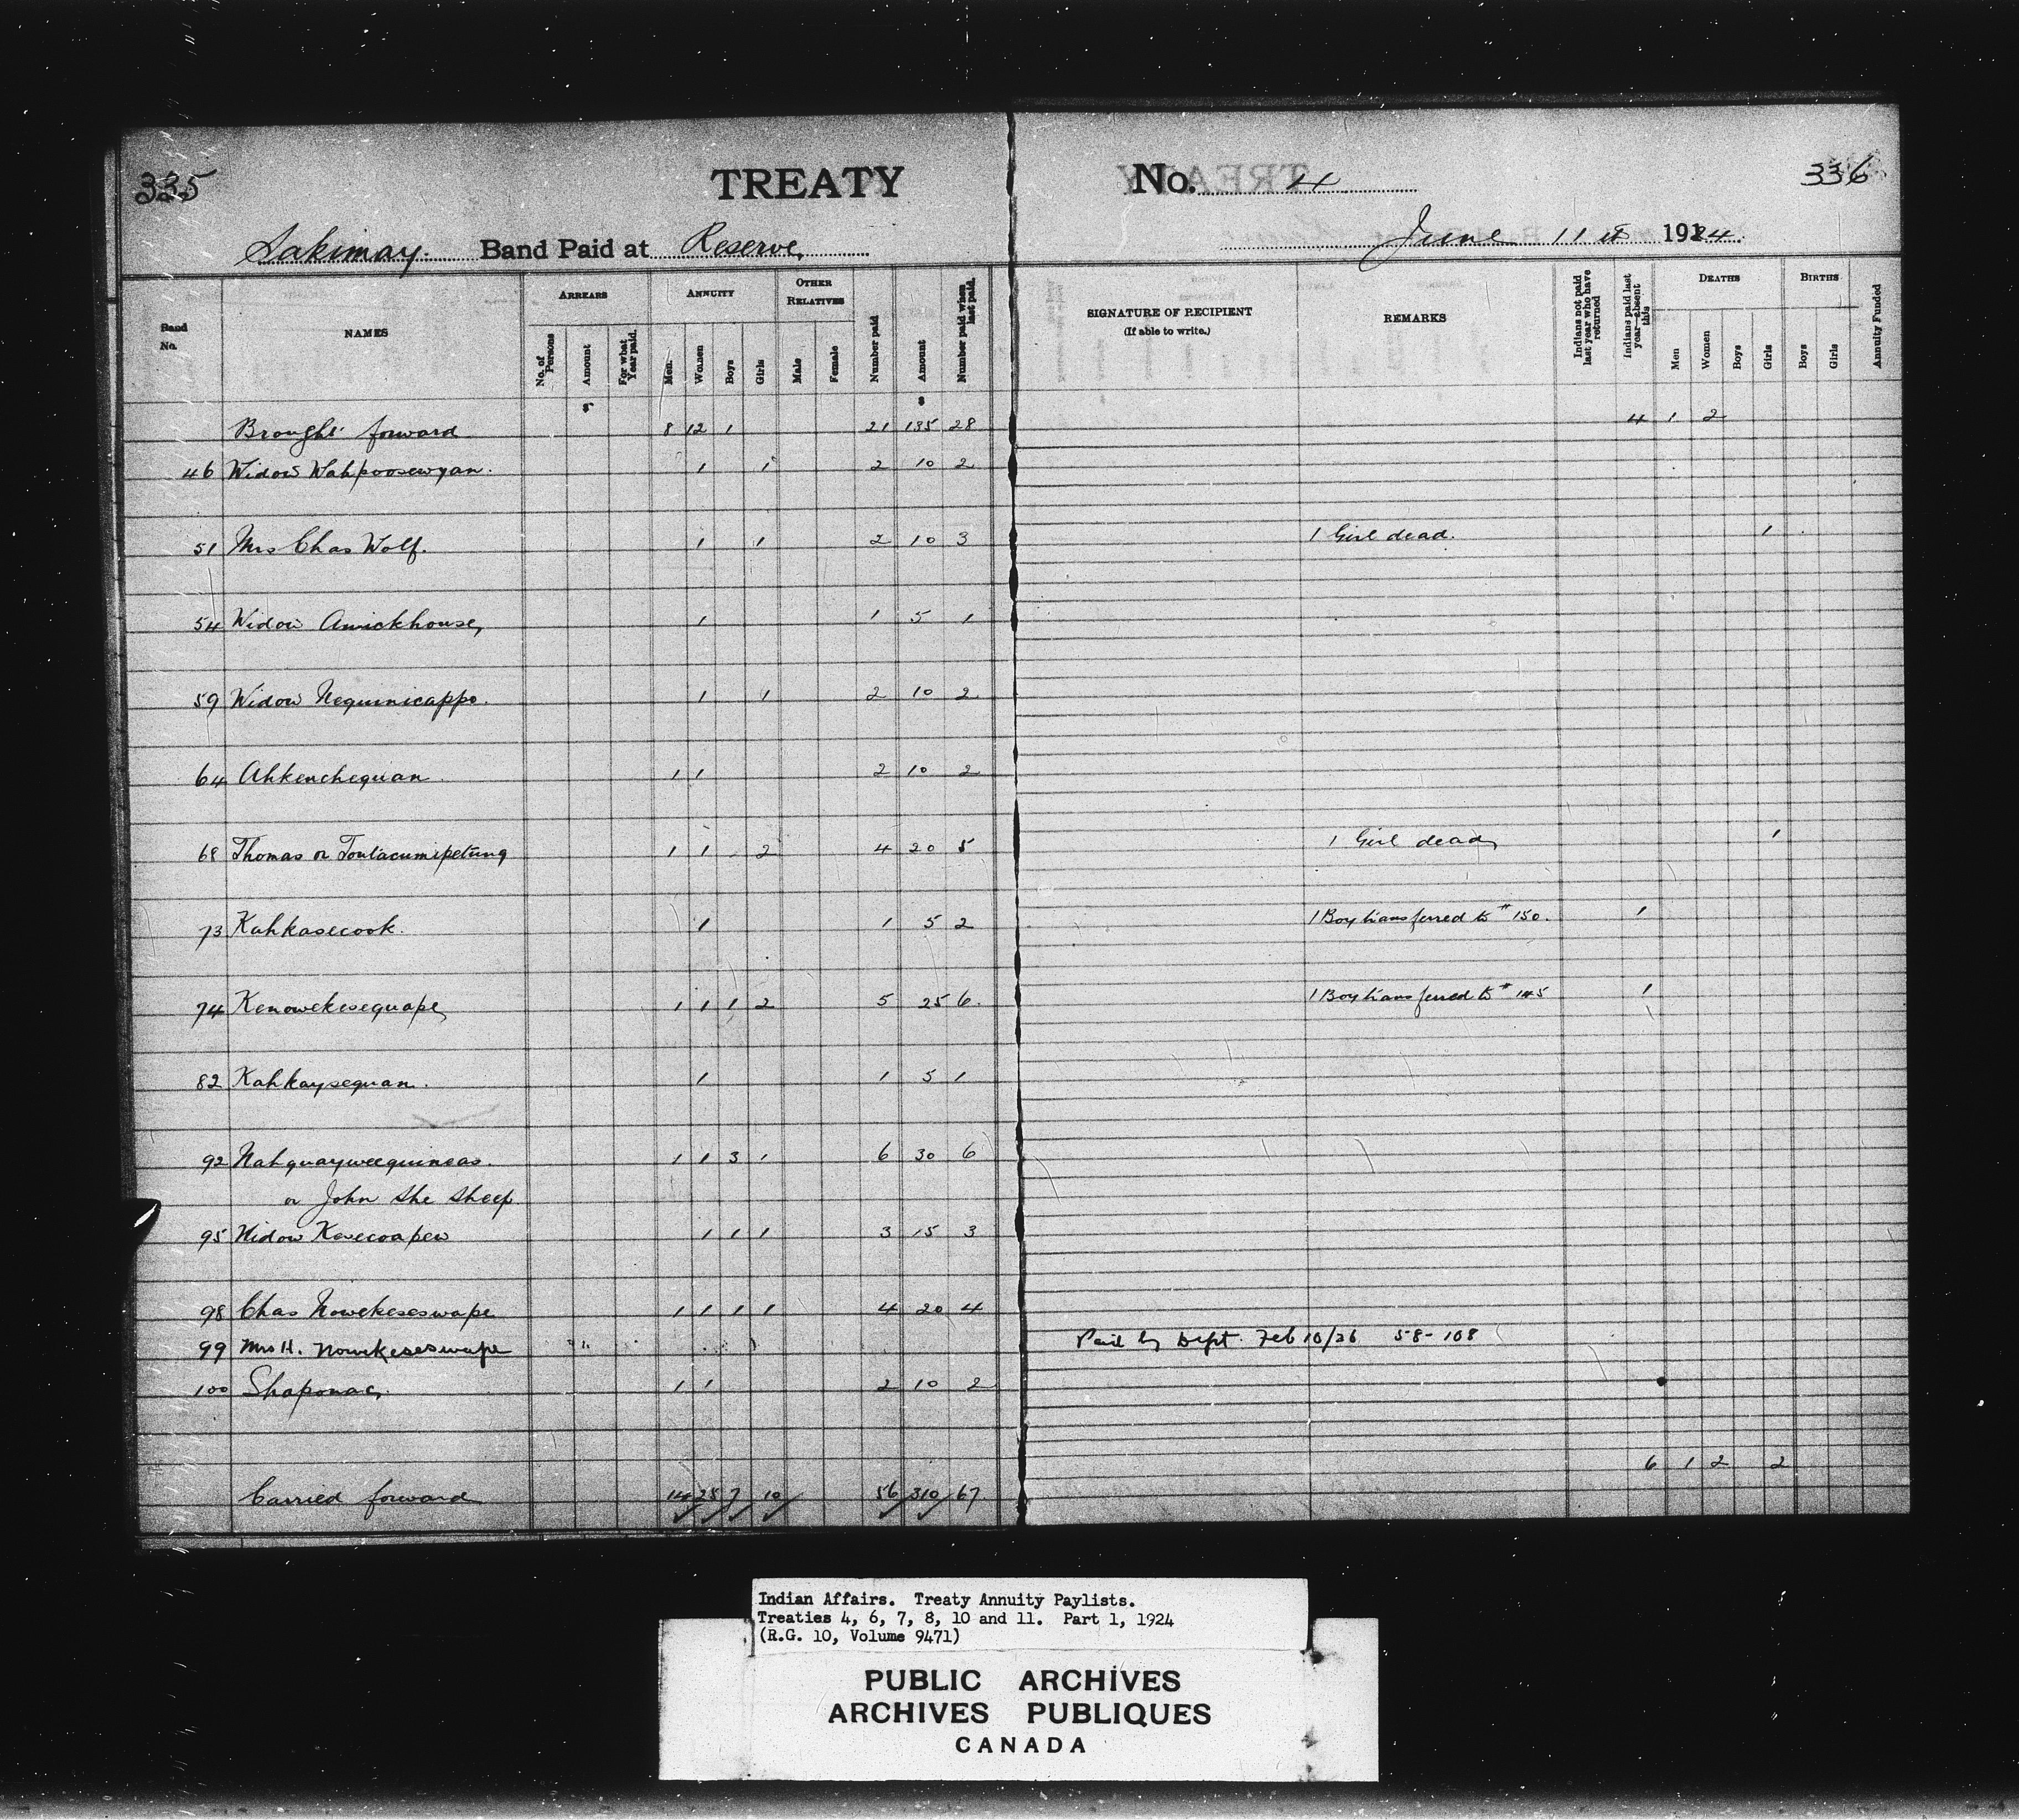 335 TREATY No. 4 336
Sakimay. Band Paid at Reserve, June 11th 1924.
Band No. NAMES ARREARS No. of Persons Amount For what Year paid. ANNUITY Men Women Boys Girls OTHER RELATIVES Male Female Number paid Amount Number paid when last paid. SIGNATURE OF RECIPIENT (If able to write.) REMARKS Indians not paid last year who have returned Indians paid last year—absent this DEATHS Men Women Boys Girls BIRTHS Boys Girls Annuity Funded
$ $
Brought forward 8 12 1 21 135 28 4 1 2
46 Widow Wahpoosewyan. 1 1 2 10 2
51 Mrs Chas Wolf. 1 1 2 10 3 1 Girl dead. 1
54 Widow Amickhouse, 1 1 5 1
59 Widow Nequinicappo. 1 1 2 10 2
64 Ahkenchequan 1 1 2 10 2
68 Thomas or Toutacumipetung 1 1 2 4 20 5 1 Girl dead, 1
73 Kahkasecook. 1 1 5 2 1 Boy transferred to #150. 1
74 Kenowekesequape, 1 1 1 2 5 25 6. 1 Boy transferred to #145 1
82 Kahkaysequan. 1 1 5 1
92 Nahquayweequineas. 1 1 3 1 6 30 6
or John the Sheep
95 Widow Kesecoapew 1 1 1 3 15 3
98 Chas Nowekeseswape 1 1 1 1 4 20 4
99 Mrs H. Nowekeseswape Paid by Dept. Feb 10/26 58-108
100 Shaponas, 1 1 2 10 2
6 1 2 2
Carried forward 14 25 7 10 56 310 67
Indian Affairs. Treaty Annuity Paylists.
Treaties 4, 6, 7, 8, 10 and 11. Part 1, 1924
(R.G. 10, Volume 9471)
PUBLIC ARCHIVES
ARCHIVES PUBLIQUES
CANADA